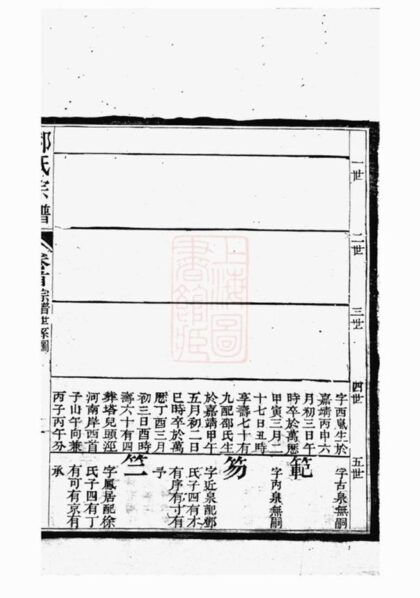 一世
二世
三世
四世
五世
字西凰生於
嘉靖丙申六
月初三日午
時卒於萬歷
甲寅三月二
十七日丑時
享壽七十有
九配邵氏生
於嘉靖甲午
五月初二日
巳時卒於萬
歷丁酉三月
初三日酉時
壽六十有四
葬塔兒頭涇
河南岸西首
子山午向兼
丙子丙午分
字古泉無嗣
範
字丙泉無嗣
笏
字近泉配鄒
氏子四有木
有序有寸有
予
竺
字鳳居配徐
氏子四有丁
有可有京有
承
氏宗譜
卷首
宗譜世系圖
上海圖書館藏